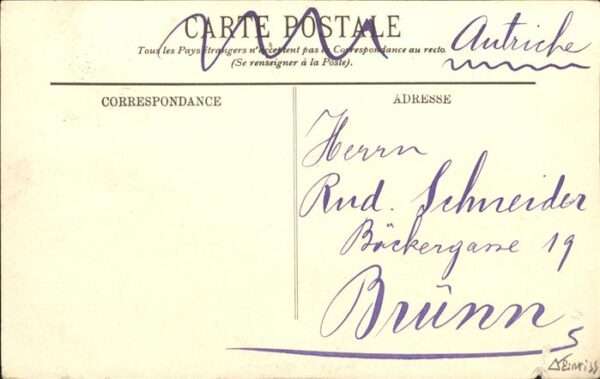 CARTE POSTALE
Autriche
Tous les Pays étrangers n'acceptent pas la Correspondance au recto.
(Se renseigner à la Poste).
CORRESPONDANCE
ADRESSE
Herrn
Rud. Schneider
Bäckergasse 19
Brünn